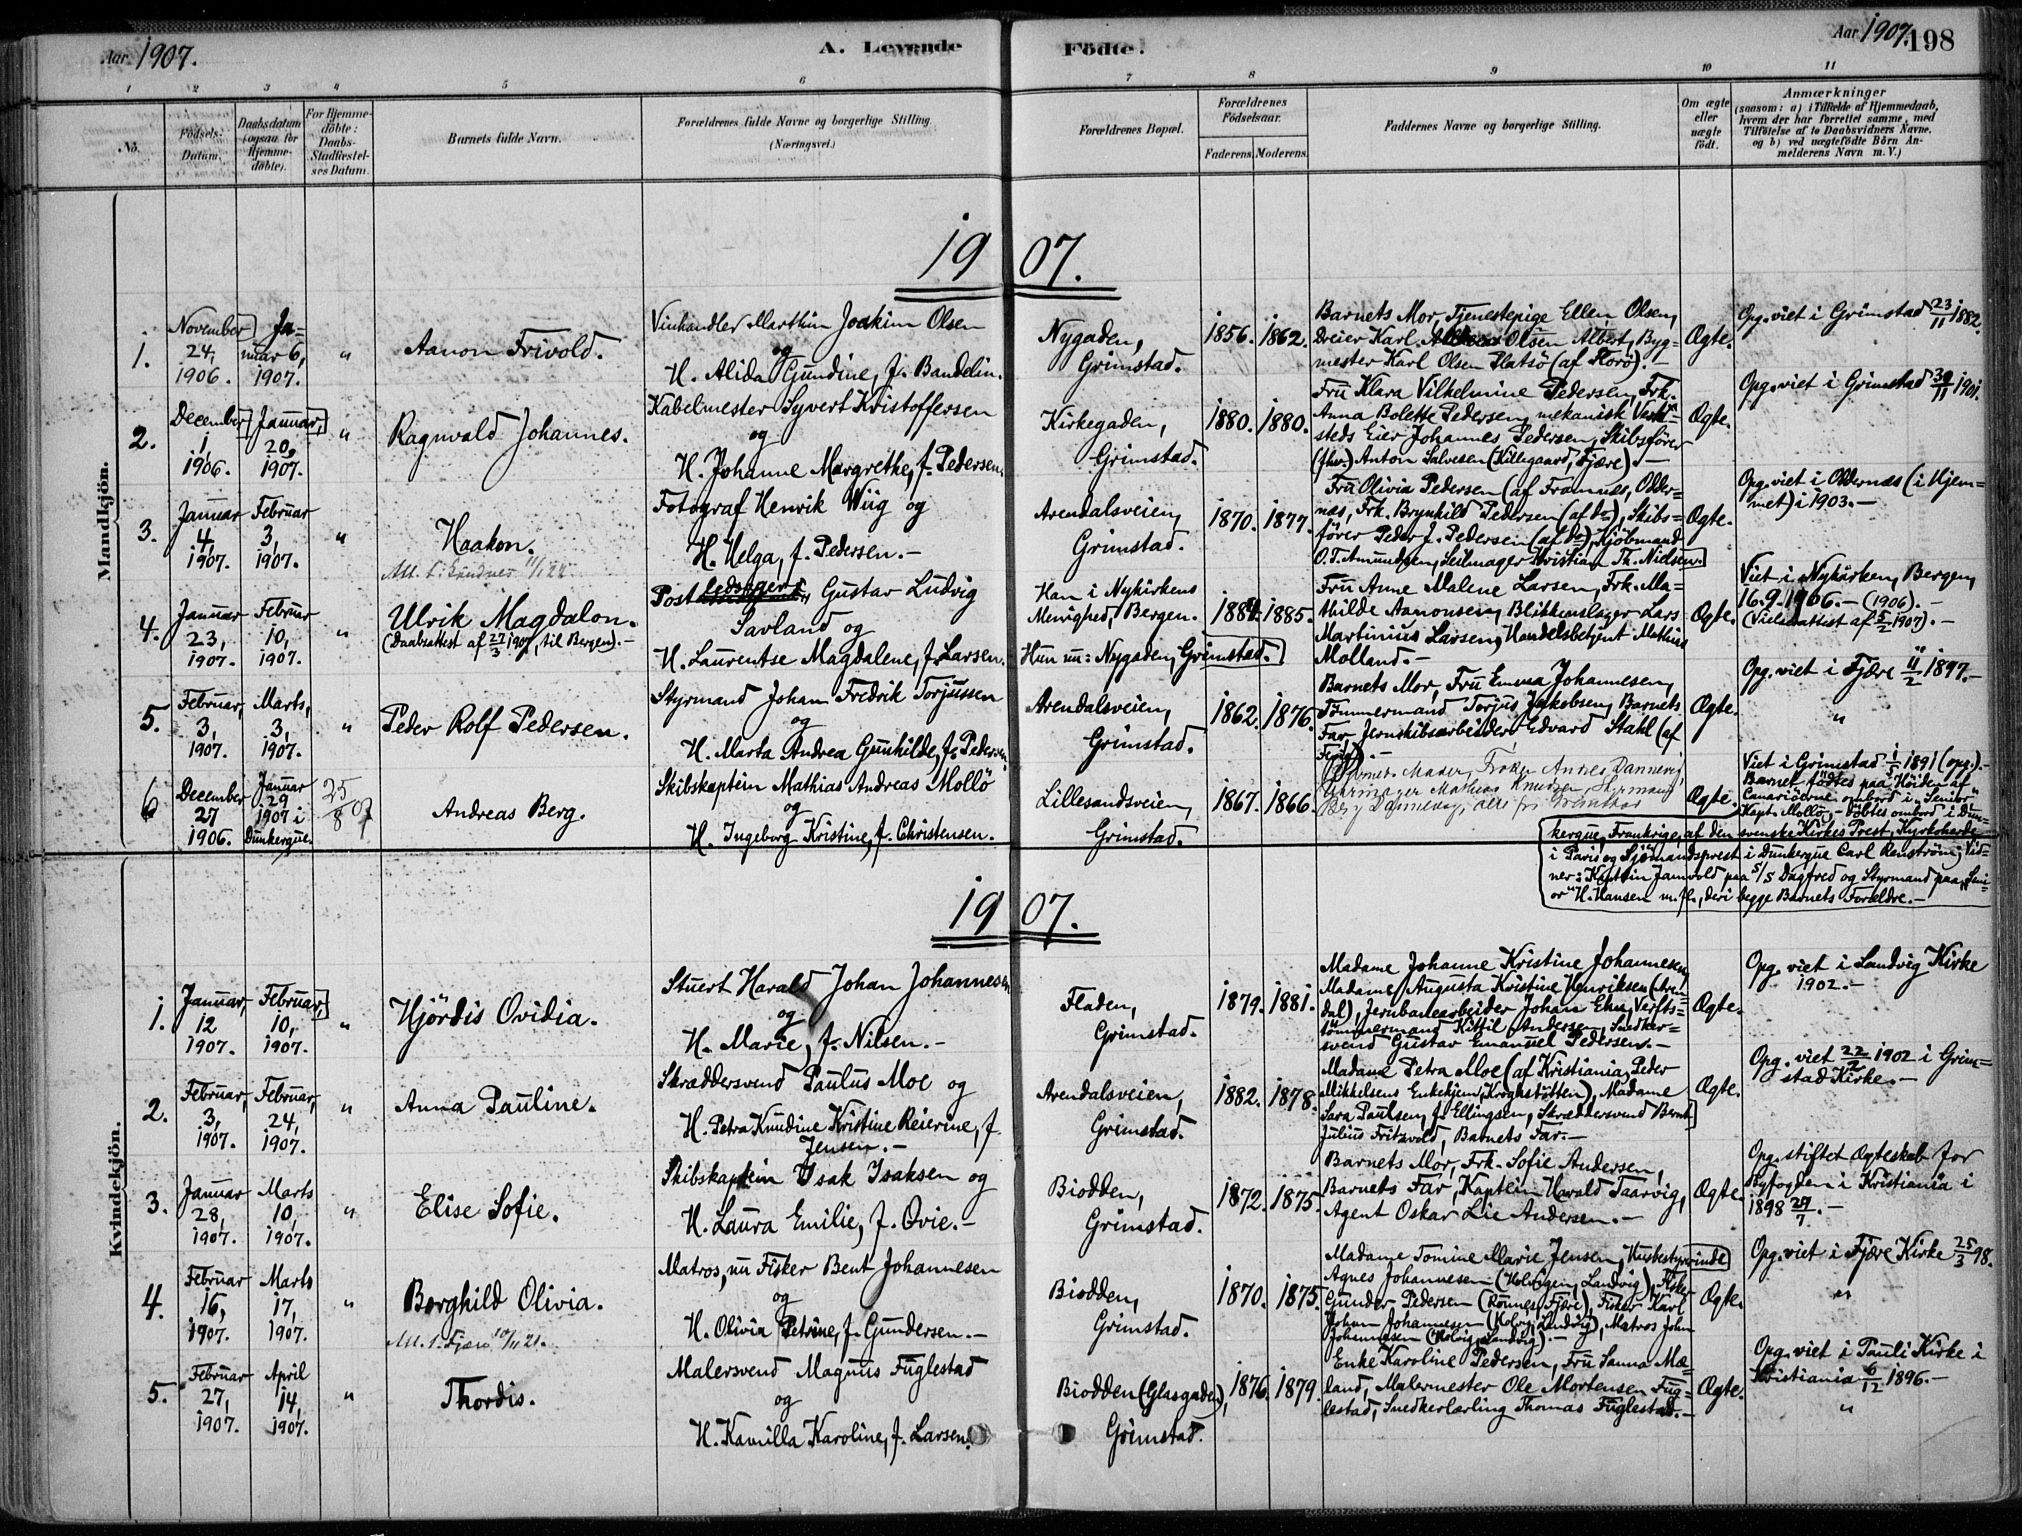 Aar 1907.
A. Levende Födte.
Aar 1907. 198
1 2 3 4 5 6 7 8 9 10 11
No.
Födsels-
Datum.
Daabsdatum
(ogsaa for
Hjemme-
döbte).
For Hjemme-
döbte:
Daabs-
Stadfæstel-
ses Datum.
Barnets fulde Navn.
Forældrenes fulde Navne og borgerlige Stilling.
(Næringsvei.)
Forældrenes Bopæl.
Forældrenes
Födselsaar.
Faderens. Moderens.
Faddernes Navne og borgerlige Stilling.
Om ægte
eller
uægte
födt.
Anmærkninger
(saasom: a) i Tilfælde af Hjemmedaab,
hvem der har forrettet samme, med
Tilföielse af to Daabsvidners Navne.
og b) ved uægtefödte Börn An-
melderens Navn m. V.)
Mandkjön.
1907.
1.
November
24,
1906.
Ja-
nuar 6,
1907.
"
Aanon Frivold.
Vinhandler Marthin Joakim Olsen
og
H. Alida Gundine, f. Bandelin.
Nygaden,
Grimstad.
1856. 1862.
Barnets Mor, Tjenestepige Ellen Olsen,
Dreier Karl Olsen Albert, Byg-
mester Karl Olsen Flatsö (af Florö).
Ægte.
Opg. viet i Grimstad 23/11 1882.
2.
December
1,
1906.
Januar,
20,
1907.
"
Ragnvald Johannes.
Kabelmester Syvert Kristoffersen
og
H. Johanne Margrethe, f. Pedersen.
Kirkegaden,
Grimstad.
1880. 1880.
Fru Klara Vilhelmine Pedersen, Frk.
Anna Bolette Pedersen, mekanisk Verk-
steds Eier Johannes Pedersen, Skibsförer
(fhv.) Anton Salvesen (Killegaard, Fjære).
Ægte.
Opg. viet i Grimstad 30/11 1901.
3.
Januar
4,
1907.
Februar
3,
1907.
"
Haakon.
Fotograf Henrik Wiig og
H. Helga, f. Pedersen.-
Arendalsveien,
Grimstad.
1870. 1877.
Fru Olivia Pedersen (af Framnæs, Odder-
næs, Frk. Brynhild Pedersen (af do), Skibs-
förer Peder J. Pedersen (af do), Kjöbmand
O. T. Amundsen, Seilmager Kristian Th. Nielsen.
Ægte.
Opg. viet i Oddernæs (i Hjem-
met) i 1903.-
4.
Januar
23,
1907.
Februar
10,
1907.
"
Ulrik Magdalon.
(Daabsattest af 27/3 1907, til Bergen).-
Post Gustav Ludvig
Savland og
H. Laurentse Magdalene, f. Larsen.
Han i Nykirkens
Menighed, Bergen.
Hun nu: Nygaden, Grimstad.
1884. 1885.
Fru Anne Malene Larsen, Frk. Ma-
thilde Aanonsen, Blikkenslager Lars
Martinius Larsen, Handelsbetjent Mathias
Molland.-
Ægte.
Viet i Nykirken, Bergen,
16.9.1906.- (1906).-
(Vielsesattest af 5/2 1907).-
5.
Februar,
3,
1907.
Marts,
3,
1907.
"
Peder Rolf Pedersen.
Styrmand Johan Fredrik Torjussen
og
H. Marta Andrea Gunhilde, f. Pedersen.
Arendalsveien,
Grimstad.
1862. 1876.
Barnets Mor, Fru Emma Johannesen,
Tömmermand Torjus Jakobsen, Barnets
Far, Jernskibsarbeider Edvard Stahl (af
Ægte.
Opg. viet i Fjære 11/2 1897.-
"
6
December
27
1906.
Januar
29
1907 i
Dunkerque.
25/8 07
Andreas Berg.
Skibskaptein Mathias Andreas Mollö
og
H. Ingeborg Kristine, f. Christensen.
Lillesandsveien,
Grimstad.
1867. 1866.
Ægte.
Viet i Grimstad 1/5 1891 (opg.).-
Barnet födtes paa Höiden af
Canariöerne ombord i „Senior"
Kapt. Mollö.- Döbtes ombord i Dun-
kerque, Frankrige, af den svenske Kirkes Prest, Kyrkoherde
i Paris og Sjömandsprest i Dunkerque Carl Renström; Vid-
ner: Kaptein Jamvold paa S/S Dagfred og Styrmand paa „Seni-
or" H. Hansen m. fl., deri begge Barnets Forældre.-
Kvindekjön.
1907.
1.
Januar,
12
1907.
Februar,
10,
1907.
"
Hjördis Ovidia.
Stuert Harald Johan Johannesen
og
H. Marie, f. Nilsen.-
Fladen,
Grimstad.
1879. 1881.
Madame Johanne Kristine Johannesen,
Madame Augusta Kristine Henriksen (Aren-
dal), Jernbanearbeider Johan Ehn, Verfts-
tömmermand Kittil Andersen, Snedker-
svend Gustav Emanuel Pedersen.-
Ægte.
Opg. viet i Landvig Kirke
1902.-
2.
Februar,
3,
1907.
Februar,
24,
1907.
"
Anna Pauline.
Skræddersvend Paulus Moe og
H. Petra Knudine Kristine Reierine, f.
Jensen.-
Arendalsveien,
Grimstad.
1882. 1878.
Madame Petra Moe (af Kristiania, Peder
Mikkelsens Enkehjem, Kroghstötten), Madame
Sara Paulsen, f. Ellingsen, Skræddersvend Bernt
Julius Fritzvold, Barnets Far.-
Ægte.
Opg. viet 22/2 1902 i Grim-
stad Kirke.-
3.
Januar
28,
1907.
Marts
10,
1907.
"
Elise Sofie.
Skibskaptein Isak Isaksen og
H. Laura Emilie, f. Ovie.-
Biodden,
Grimstad.
1872. 1875.
Barnets Mor, Frk. Sofie Andersen,
Barnets Far, Kaptein Harald Taarvig,
Agent Oskar Lie Andersen.-
Ægte.
Opg. stiftet Ægteskab for
Byfogden i Kristiania i
1898 29/7.-
4.
Februar
16,
1907.
Marts
17,
1907.
"
Borghild Olivia.
Matros, nu Fisker Bent Johannesen
og
H. Olivia Petrine, f. Gundersen.-
Biodden,
Grimstad.
1870. 1875.
Madame Tomine Marie Jensen, Husbestyrerinde
Agnes Johannesen (Holvigen, Landvig), Fisker
Gunder Pedersen (Rönnes, Fjære), Fisker Karl
Johan Johannesen (Holvig, Landvig), Matros John
Johannesen (Holvig, Landvig).-
Ægte.
Opg. viet i Fjære Kirke 25/3 98.
"
5.
Februar
27,
1907.
April
14,
1907.
"
Thordis.
Malersvend Magnus Fuglestad
og
H. Kamilla Karoline, f. Larsen.
Biodden (Glasgaden),
Grimstad.
1876. 1879.
Enke Karoline Pedersen, Fru Sanna Mæ-
land, Malermester Ole Mortensen Fug-
lestad, Snedkerlærling Thomas Fuglestad.-
Ægte.
Opg. viet i Pauli Kirke i
Kristiania 6/12 1896.-
"